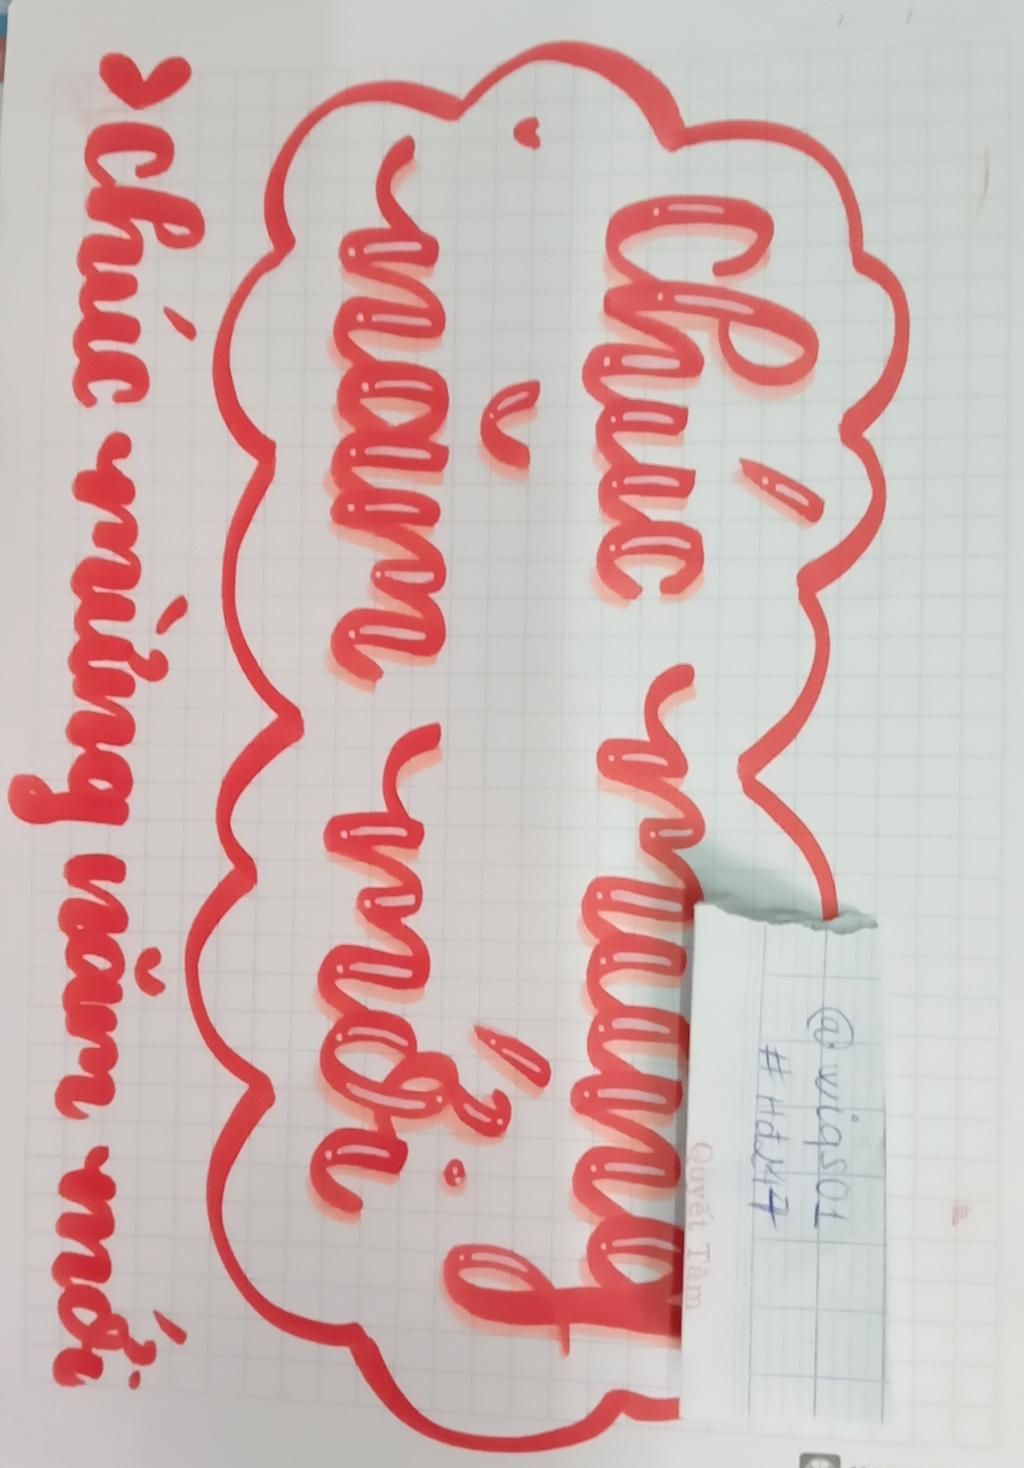 Chúc mừng
năm mới
@wiqs01
#Hd247
Quyết Tâm
chúc mừng năm mới